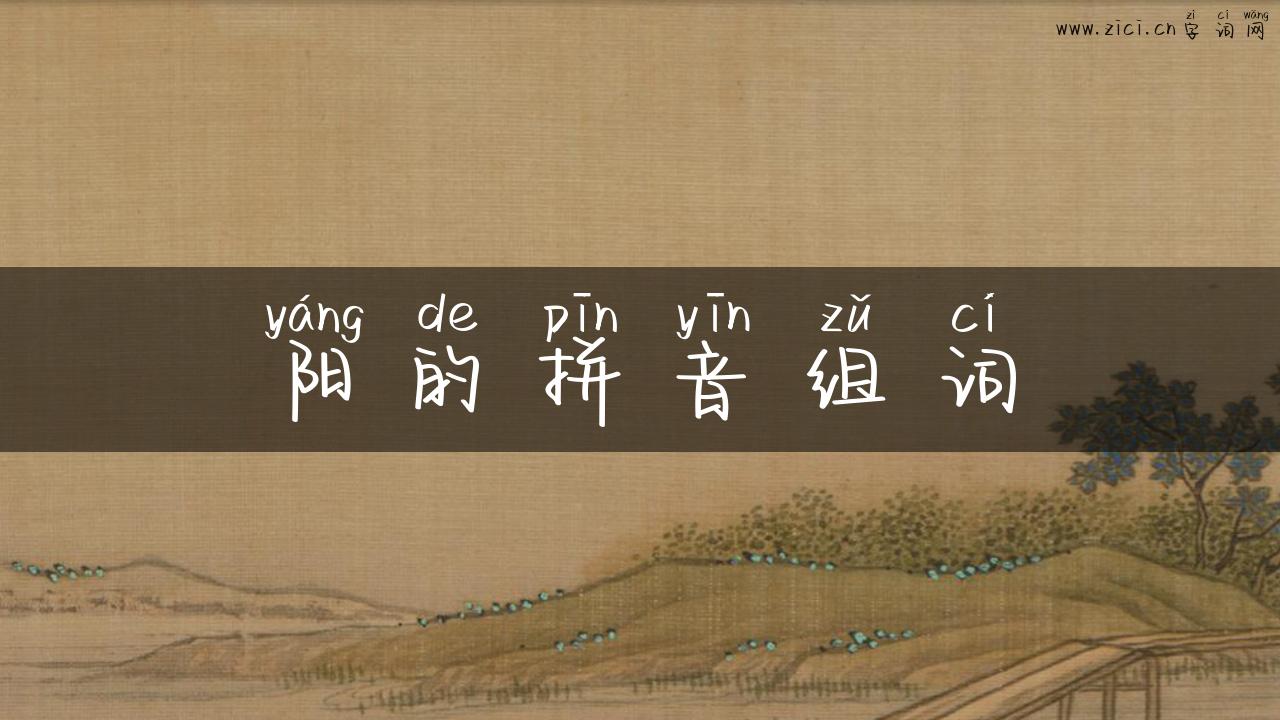 zì cí wǎng
www.zici.cn字词网
yáng de pīn yīn zǔ cí
阳的拼音组词